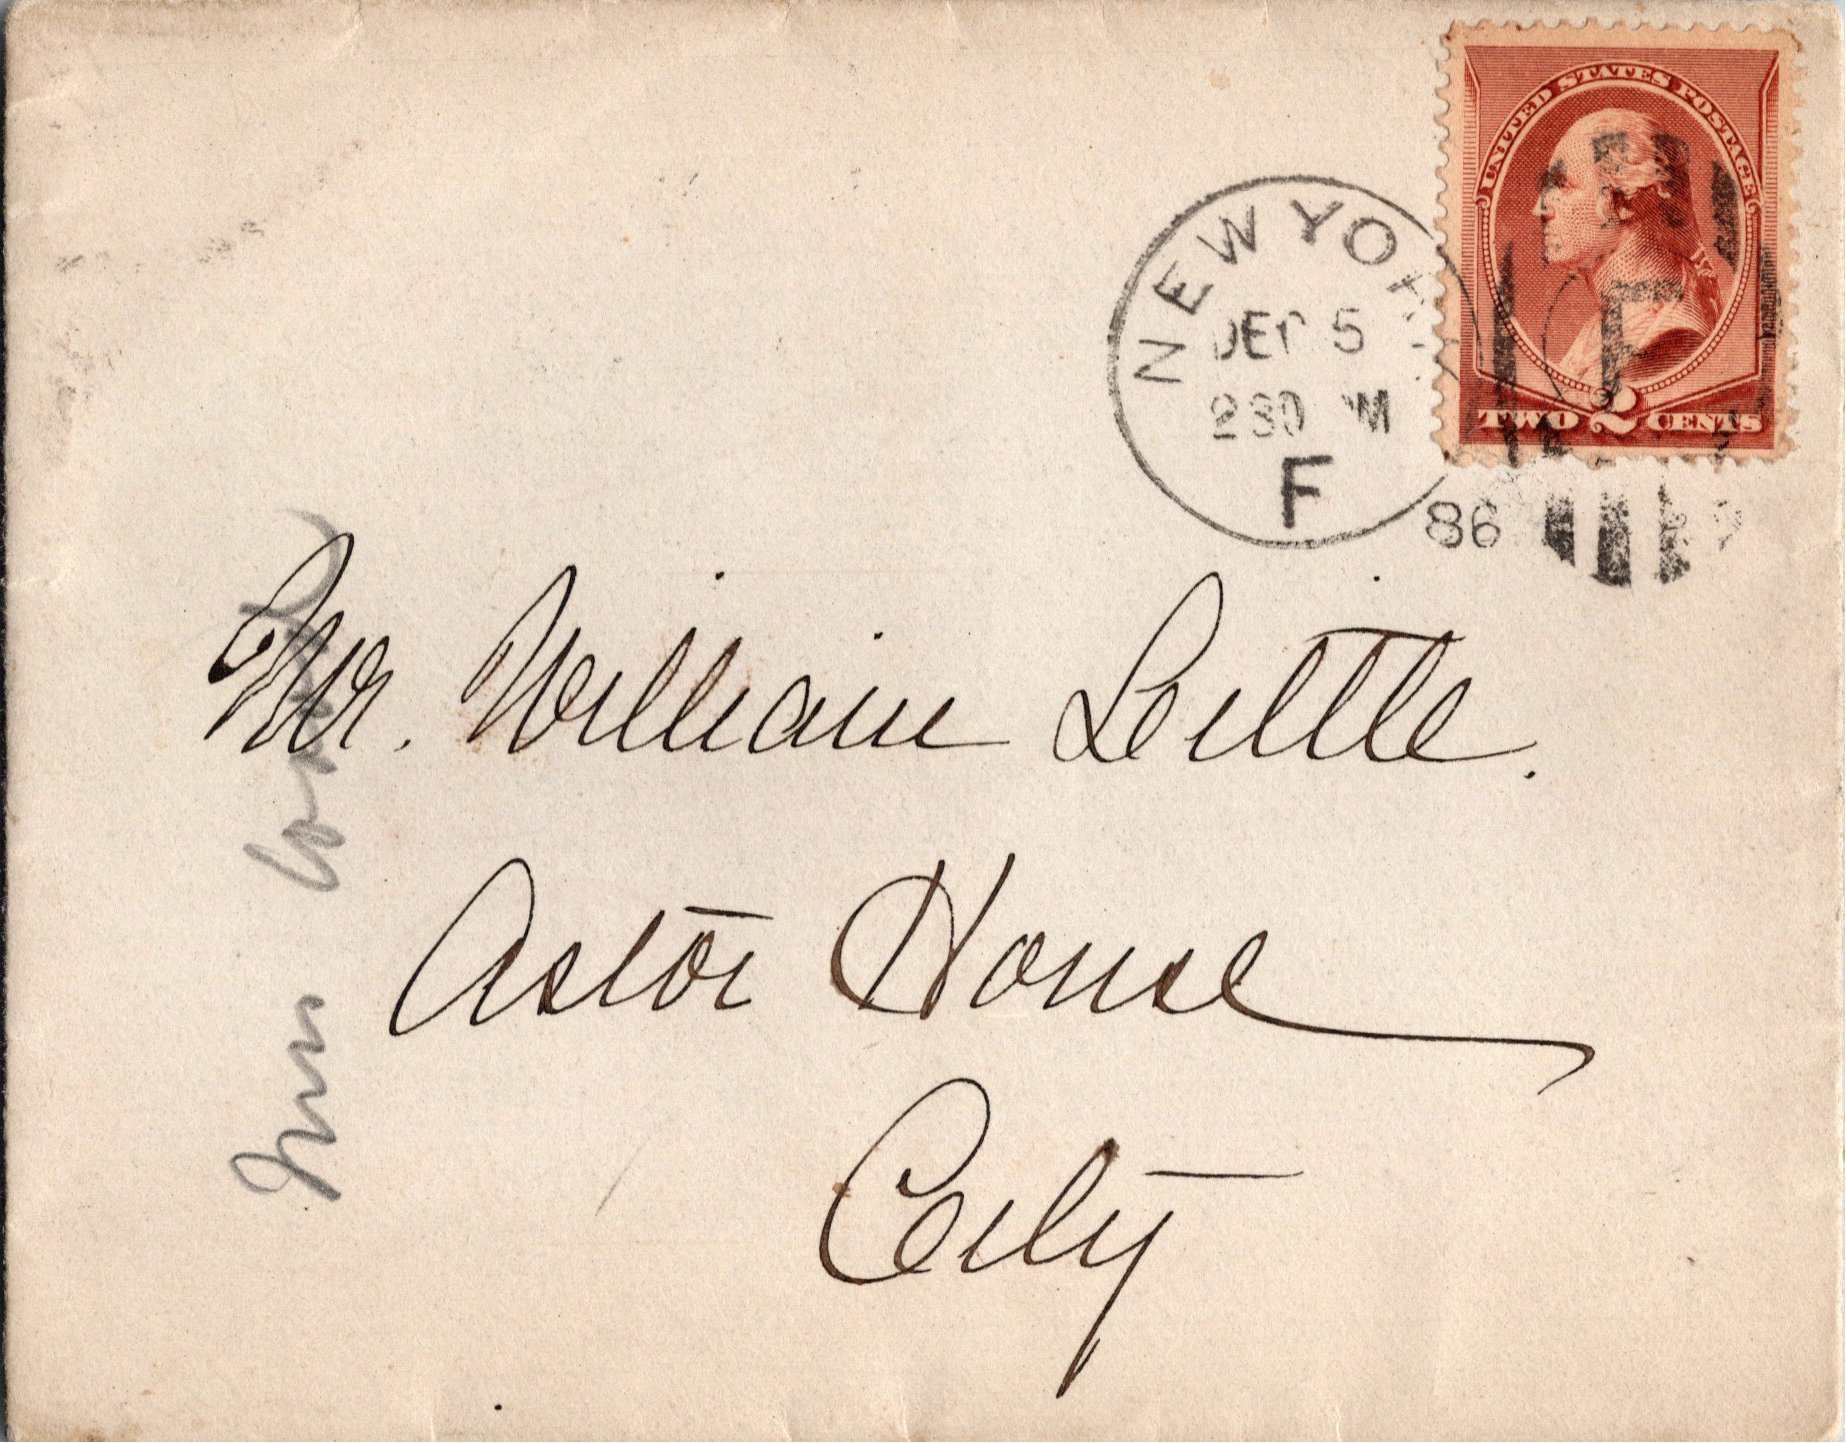 UNITED STATES POSTAGE
TWO 2 CENTS
NEW YO
DEC 5
230 PM
F
86
F
Mr. William Little.
Astor House
City